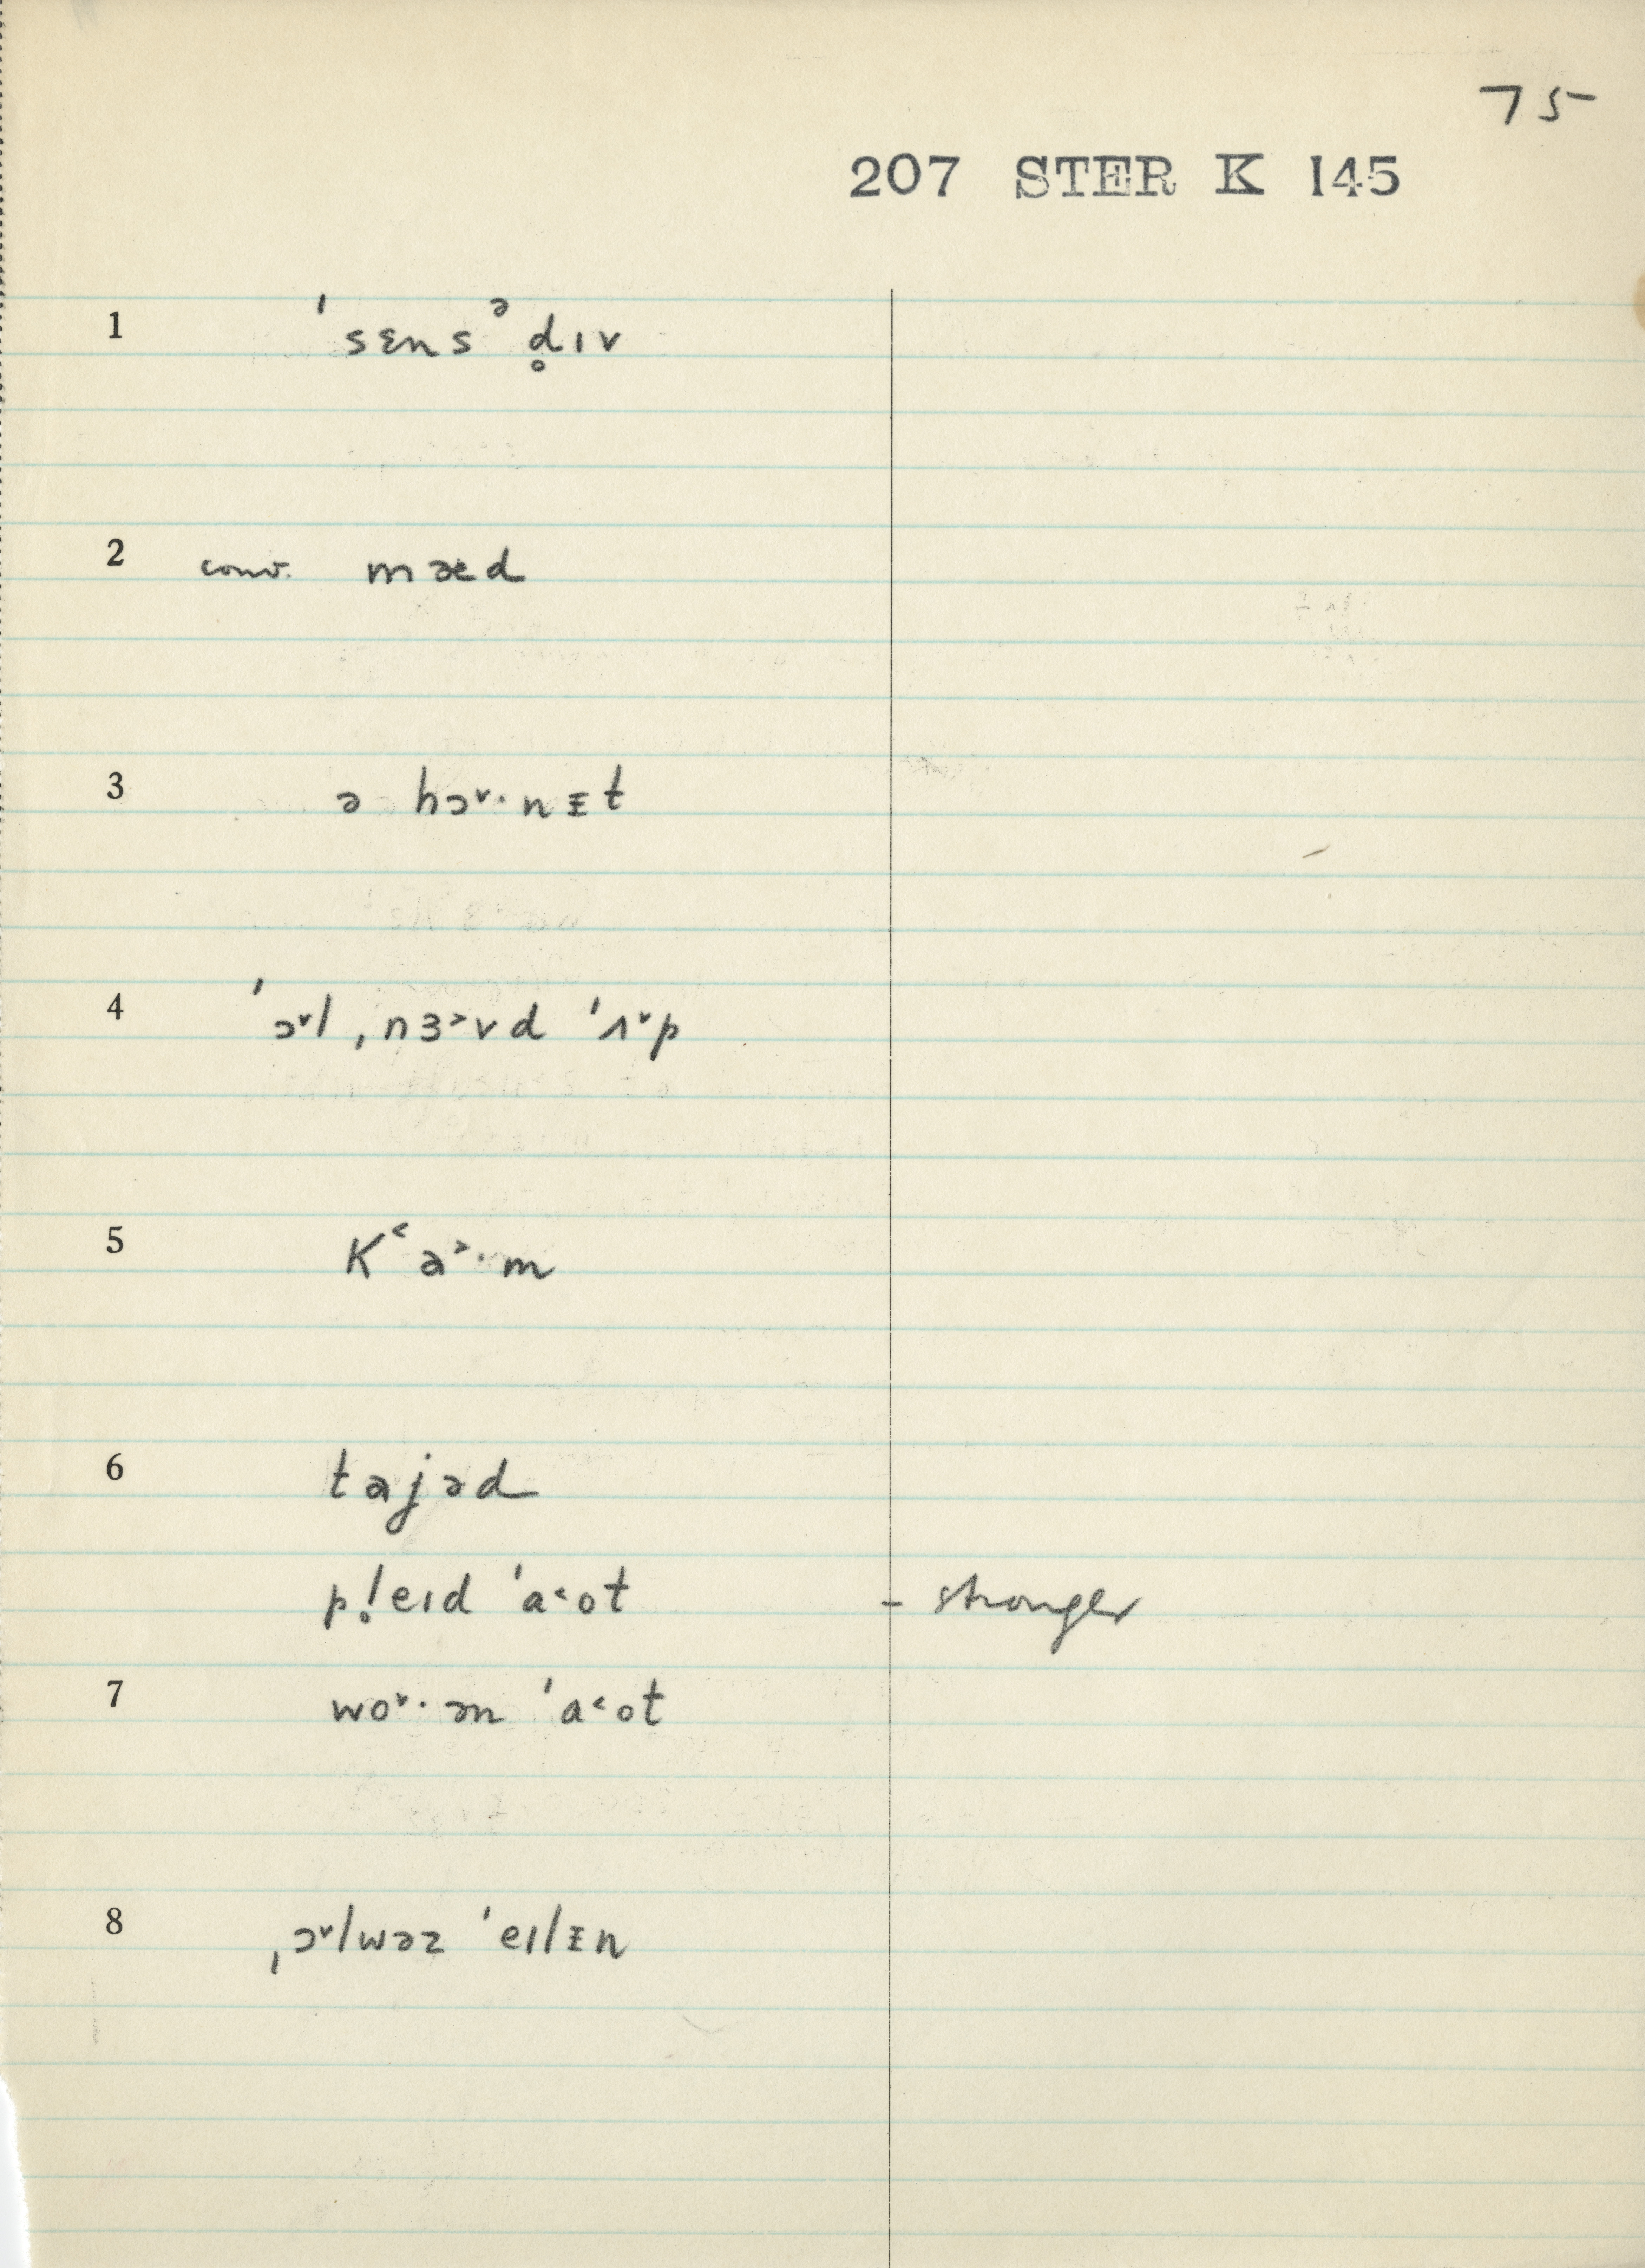 75
207 STER K 145
1 ˈsɛnsᵊd̥ɪv
2 conv. mæd
3 ə hɔ˅·nᵻt
4 ˈɔ˅l ˌnɜ˃vd ˈʌ˅p
5 K˂a˃·m
6 tajəd
pl̥eɪd ˈa˂ot - stronger
7 wo˅·ən ˈa˂ot
8 ˌɔ˅lwəz ˈeɪlᵻn